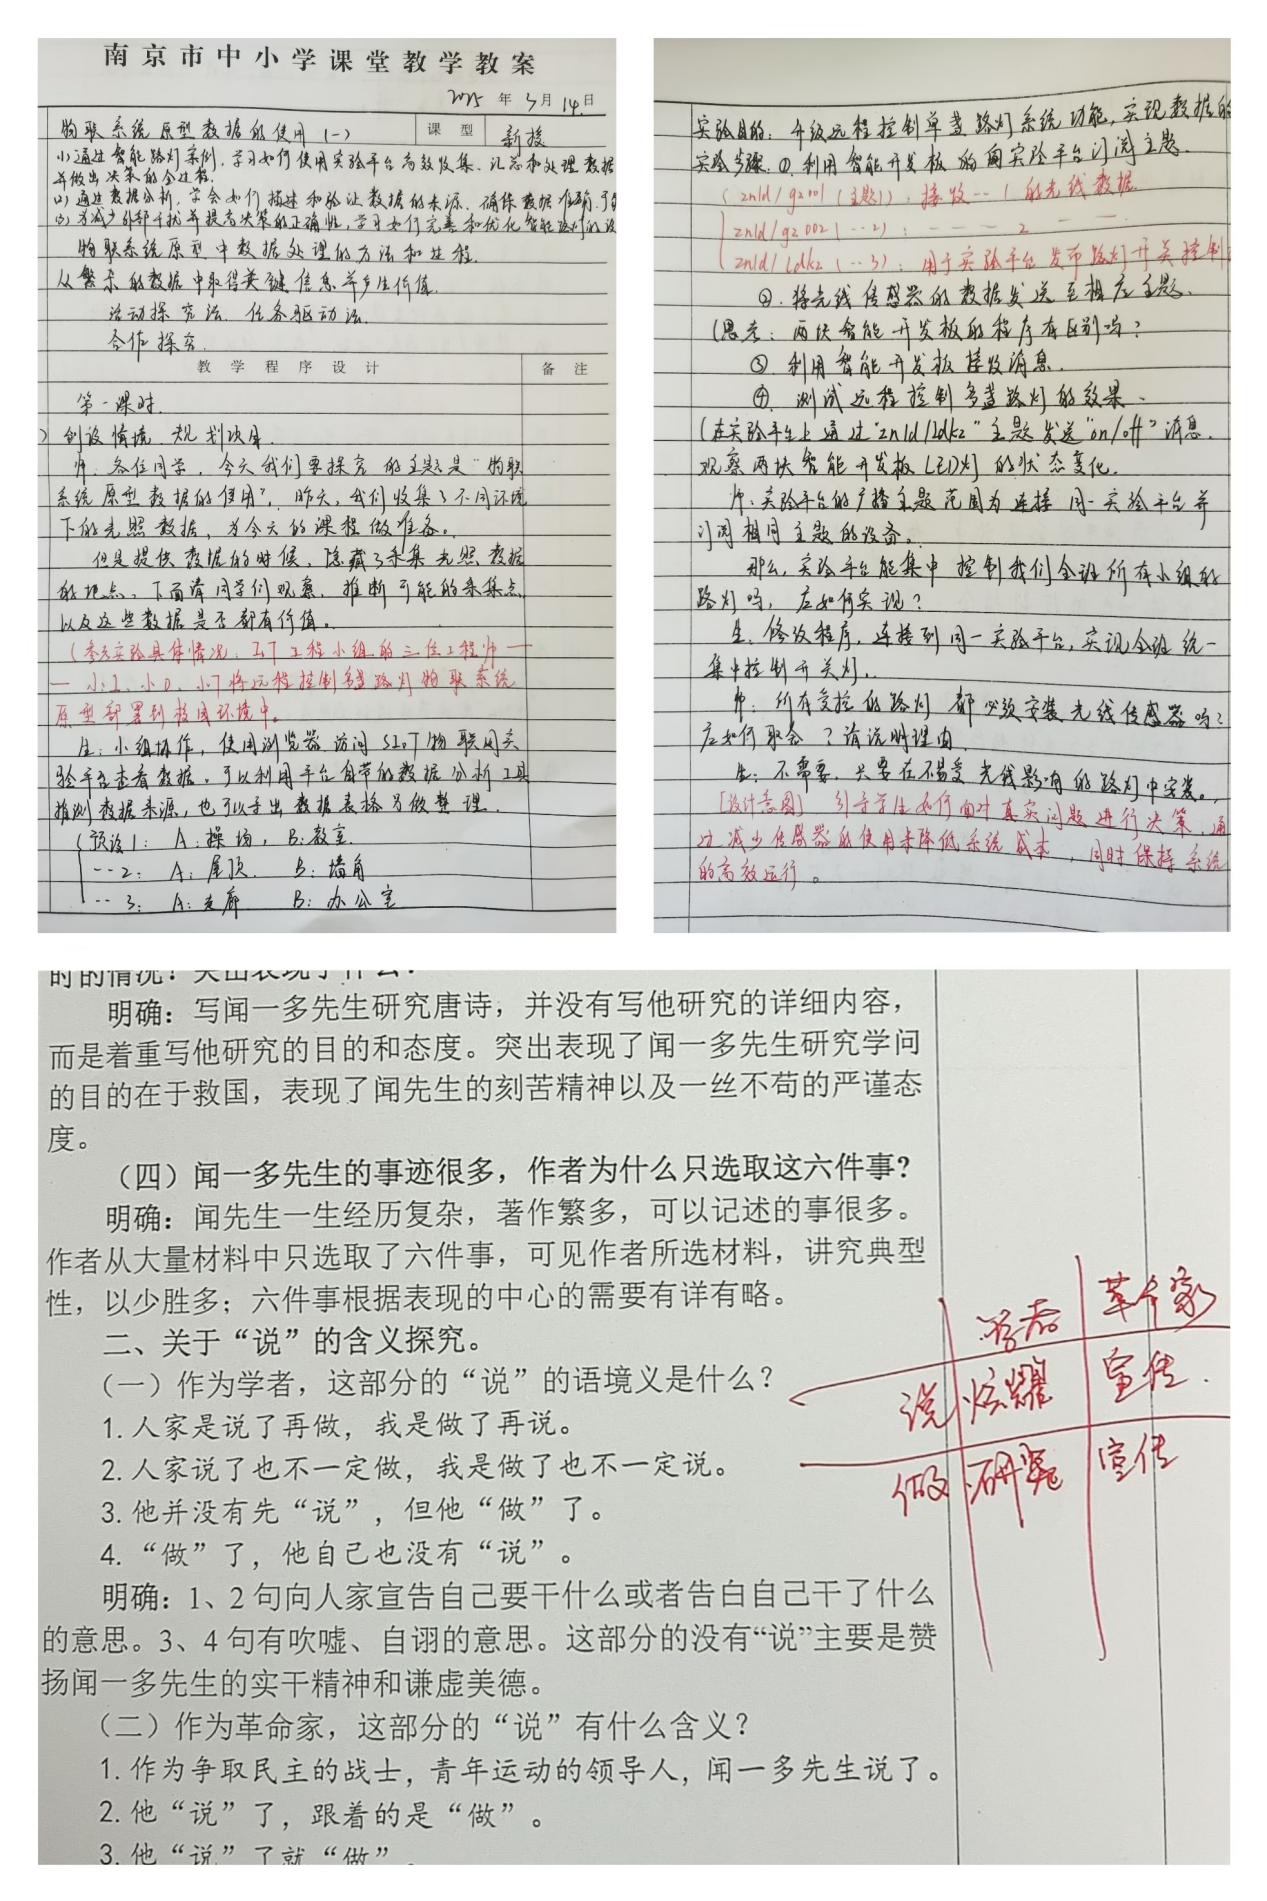 南京市中小学课堂教学教案
2025年3月14日
物联系统原型数据的使用（一） 课型 新授
(1)通过智能路灯案例，学习如何使用实验平台高效收集、汇总和处理数据
并做出决策的全过程。
(2)通过数据分析，学会如何描述和验证数据的来源、确保数据准确
(3)为减少外部干扰并提高决策的正确性，学习如何完善和优化智能路灯的设
物联系统原型中数据处理的方法和过程.
从繁杂的数据中取得关键信息并产生价值.
活动探究法、任务驱动法.
合作探究.
教学程序设计 备注
第一课时.
创设情境、规划项目.
师：各位同学，今天我们要探究的主题是“物联
系统原型数据的使用”，昨天，我们收集了不同环境
下的光照数据，为今天的课程做准备。
但是提供数据的时候，隐藏了采集光照数据
的地点，下面请同学们观察、推断可能的采集点
以及这些数据是否都有价值。
(参考实验具体情况：IoT工程小组的三位工程师—
—小I、小O、小T将远程控制多盏路灯物联系统
原型部署到校园环境中。
生：小组协作，使用浏览器访问SIoT物联网实
验平台查看数据。可以利用平台自带的数据分析工具
推测数据来源，也可以导出数据表格另做整理.
预设1：A：操场，B：教室.
--2：A：屋顶. B：墙角
--3：A：走廊 B：办公室
实验目的：升级远程控制单盏路灯系统功能，实现数据的
实验步骤：①.利用智能开发板的向实验平台订阅主题.
(znld/gz001(主题1)：接收--1的光线数据.
znld/gz002(--2)：- - - - 2 - -
znld/ldkz(--3)：用于实验平台发布路灯开关控制
②.将光线传感器的数据发送至相应主题.
(思考：两块智能开发板的程序有区别吗？
③.利用智能开发板接收消息.
④.测试远程控制多盏路灯的效果.
(在实验平台上通过“znld/ldkz”主题发送“on/off”消息.
观察两块智能开发板LED灯的状态变化.
师：实验平台的广播主题范围为连接同一实验平台并
订阅相同主题的设备。
那么，实验平台能集中控制我们全班所有小组的
路灯吗，应如何实现？
生：修改程序，连接到同一实验平台，实现全班统一
集中控制开关灯.
师：所有受控的路灯都必须安装光线传感器吗？
应如何取舍？请说明理由.
生：不需要，只要在不易受光线影响的路灯中安装。
[设计意图] 引导学生如何面对真实问题进行决策，通
过减少传感器的使用来降低系统成本，同时保持系统
的高效运行。
时的情况？突出表现了什么？
明确：写闻一多先生研究唐诗，并没有写他研究的详细内容，
而是着重写他研究的目的和态度。突出表现了闻一多先生研究学问
的目的在于救国，表现了闻先生的刻苦精神以及一丝不苟的严谨态
度。
（四）闻一多先生的事迹很多，作者为什么只选取这六件事?
明确：闻先生一生经历复杂，著作繁多，可以记述的事很多。
作者从大量材料中只选取了六件事，可见作者所选材料，讲究典型
性，以少胜多；六件事根据表现的中心的需要有详有略。
二、关于“说”的含义探究。
（一）作为学者，这部分的“说”的语境义是什么？
1.人家是说了再做，我是做了再说。
2.人家说了也不一定做，我是做了也不一定说。
3.他并没有先“说”，但他“做”了。
4.“做”了，他自己也没有“说”。
明确：1、2句向人家宣告自己要干什么或者告白自己干了什么
的意思。3、4句有吹嘘、自诩的意思。这部分的没有“说”主要是赞
扬闻一多先生的实干精神和谦虚美德。
（二）作为革命家，这部分的“说”有什么含义？
1.作为争取民主的战士，青年运动的领导人，闻一多先生说了。
2.他“说”了，跟着的是“做”。
3.他“说”了就“做”。
学者 革命家
说 炫耀 宣传.
做 研究 宣传